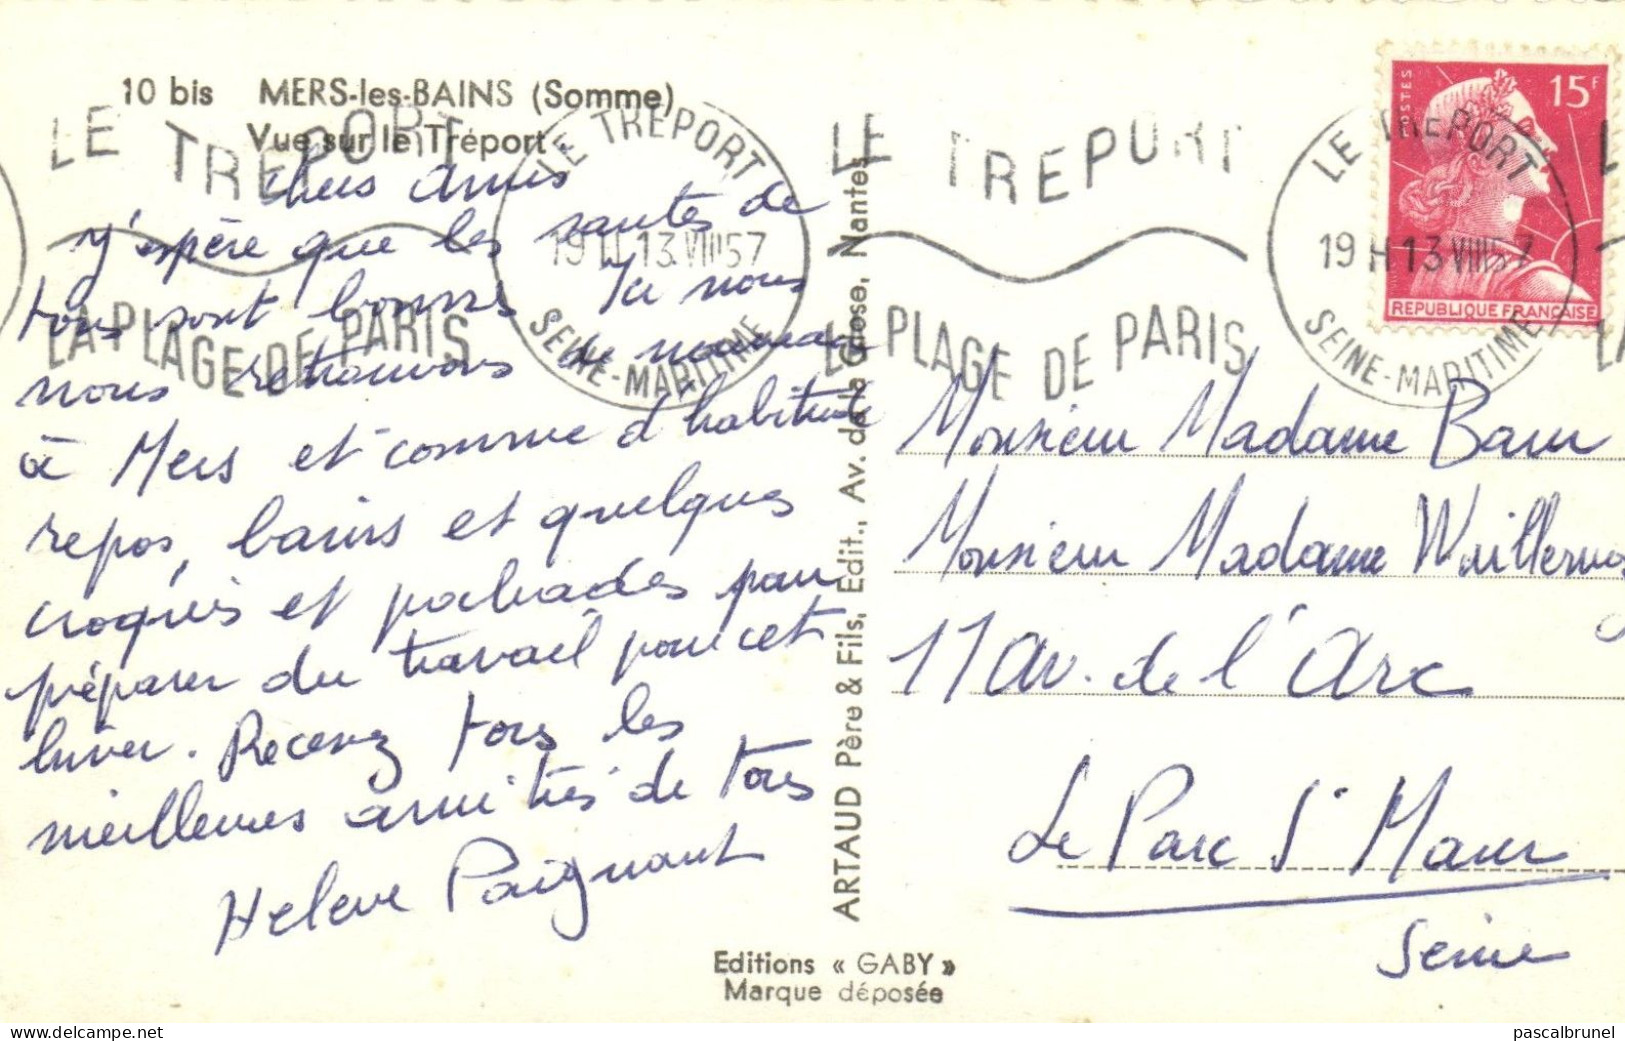 10 bis MERS-les-BAINS (Somme)
Vue sur le Tréport
LE TREPORT
LA PLAGE DE PARIS
LE TREPORT
19 H 13 VIII 57
SEINE-MARITIME
LE TREPORT
LA PLAGE DE PARIS
LE TREPORT
19 H 13 VIII 57
SEINE-MARITIME
POSTES
15F
REPUBLIQUE FRANÇAISE
chers amis
J'espère que les santés de
tous sont bonnes Ici nous
nous retrouvons de nouveau
à Mers et comme d'habitude
repos, bains et quelques
croquis et pochades pour
préparer du travail pour cet
hiver. Recevez tous les
meilleures amitiés de tous
Helene Paignant
ARTAUD Père & Fils, Edit., Av. de la Close, Nantes
Editions « GABY »
Marque déposée
Monsieur Madame Baur
Monsieur Madame
Av. de l'Arc
Le Parc St Maur
Seine
delcampe.net
pascalbrunel